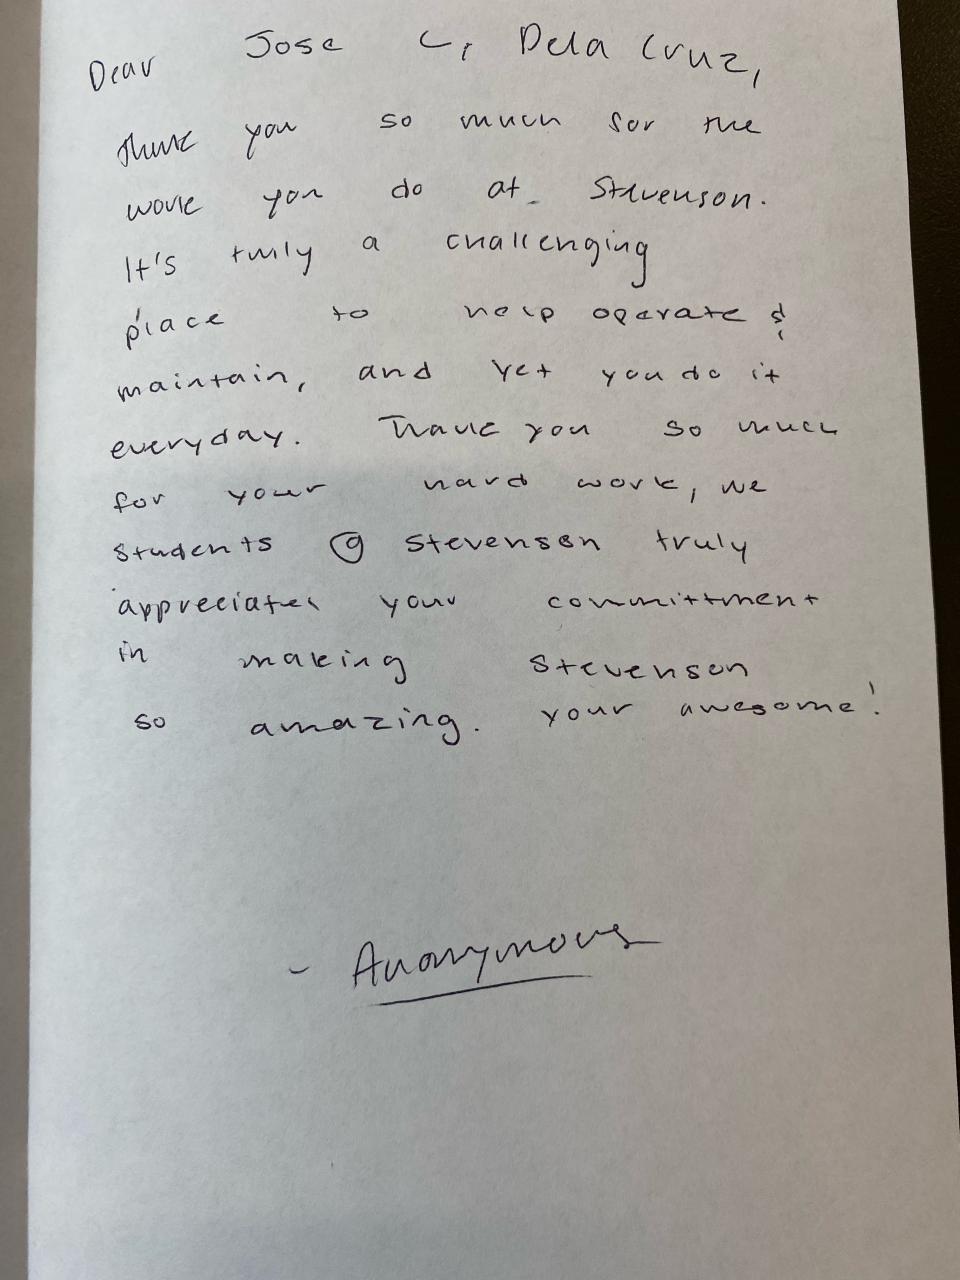 Dear Jose C, Dela Cruz,
Thank you so much for the
work you do at Stevenson.
It's truly a challenging
place to help operate &
maintain, and yet you do it
everyday. Thank you so much
for your hard work, we
students @ Stevenson truly
appreciates your committment
in making Stevenson
so amazing. your awesome!
- Anonymous